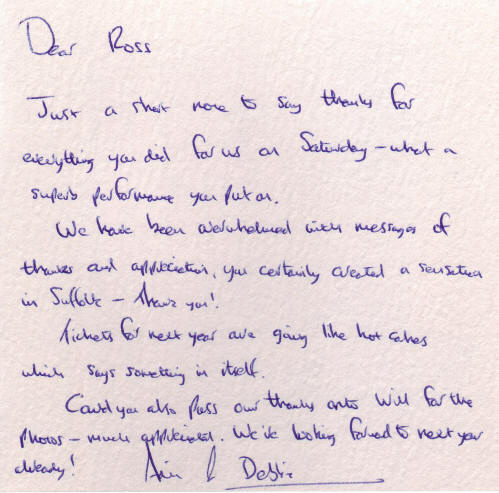 Dear Ross
Just a short note to say thanks for
everything you did for us on Saturday - what a
superb performance you put on.
We have been overwhelmed with messages of
thanks and appreciation, you certainly created a sensation
in Suffolk - Thank you!
Tickets for next year are going like hot cakes
which says something in itself.
Could you also pass our thanks onto Will for the
photos - much appreciated. We're looking forward to next year
already!
& Debbie